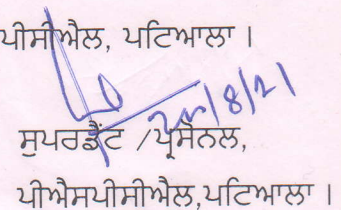 ਪੀਸੀਐਲ, ਪਟਿਆਲਾ ।
20/8/21
ਸੁਪਰਡੈਂਟ /ਪ੍ਰਸੋਨਲ,
ਪੀਐਸਪੀਸੀਐਲ,ਪਟਿਆਲਾ ।